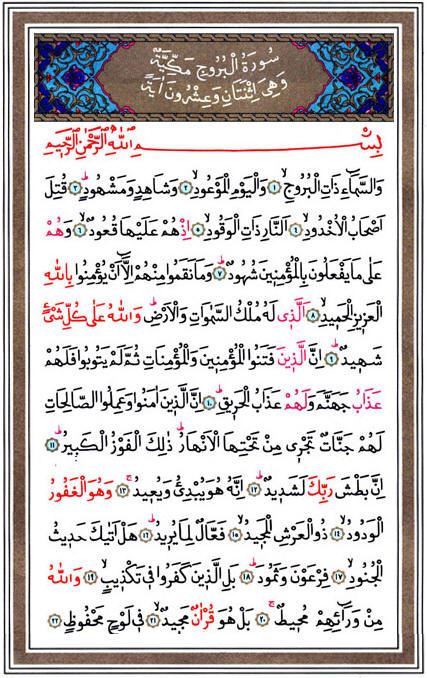 سُورَةُ الْبُرُوجِ مَكِّيَّةٌ
وَهِيَ اثْنَتَانِ وَعِشْرُونَ اٰيَةً
بِسْمِ اللّٰهِ الرَّحْمٰنِ الرَّحِيمِ
وَالسَّمَٓاءِ ذَاتِ الْبُرُوجِۙ ﴿١﴾ وَالْيَوْمِ الْمَوْعُودِۙ ﴿٢﴾ وَشَاهِدٍ وَمَشْهُودٍۜ ﴿٣﴾ قُتِلَ
اَصْحَابُ الْاُخْدُودِۙ ﴿٤﴾ اَلنَّارِ ذَاتِ الْوَقُودِۙ ﴿٥﴾ اِذْ هُمْ عَلَيْهَا قُعُودٌۙ ﴿٦﴾ وَهُمْ
عَلٰى مَا يَفْعَلُونَ بِالْمُؤْمِنِينَ شُهُودٌۜ ﴿٧﴾ وَمَا نَقَمُوا مِنْهُمْ اِلَّٓا اَنْ يُؤْمِنُوا بِاللّٰهِ
الْعَزِيزِ الْحَمِيدِۙ ﴿٨﴾ اَلَّذِي لَهُ مُلْكُ السَّمٰوَاتِ وَالْاَرْضِۜ وَاللّٰهُ عَلٰى كُلِّ شَيْءٍ
شَهِيدٌۜ ﴿٩﴾ اِنَّ الَّذِينَ فَتَنُوا الْمُؤْمِنِينَ وَالْمُؤْمِنَاتِ ثُمَّ لَمْ يَتُوبُوا فَلَهُمْ
عَذَابُ جَهَنَّمَ وَلَهُمْ عَذَابُ الْحَرِيقِۜ ﴿١٠﴾ اِنَّ الَّذِينَ اٰمَنُوا وَعَمِلُوا الصَّالِحَاتِ
لَهُمْ جَنَّاتٌ تَجْرِي مِنْ تَحْتِهَا الْاَنْهَارُۜ ذٰلِكَ الْفَوْزُ الْكَبِيرُۜ ﴿١١﴾
اِنَّ بَطْشَ رَبِّكَ لَشَدِيدٌۜ ﴿١٢﴾ اِنَّهُ هُوَ يُبْدِئُ وَيُعِيدُۚ ﴿١٣﴾ وَهُوَ الْغَفُورُ
الْوَدُودُۙ ﴿١٤﴾ ذُو الْعَرْشِ الْمَجِيدُۙ ﴿١٥﴾ فَعَّالٌ لِمَا يُرِيدُۜ ﴿١٦﴾ هَلْ اَتٰيكَ حَدِيثُ
الْجُنُودِۙ ﴿١٧﴾ فِرْعَوْنَ وَثَمُودَۜ ﴿١٨﴾ بَلِ الَّذِينَ كَفَرُوا فِي تَكْذِيبٍۙ ﴿١٩﴾ وَاللّٰهُ
مِنْ وَرَٓائِهِمْ مُحِيطٌۚ ﴿٢٠﴾ بَلْ هُوَ قُرْاٰنٌ مَجِيدٌۙ ﴿٢١﴾ فِي لَوْحٍ مَحْفُوظٍ ﴿٢٢﴾